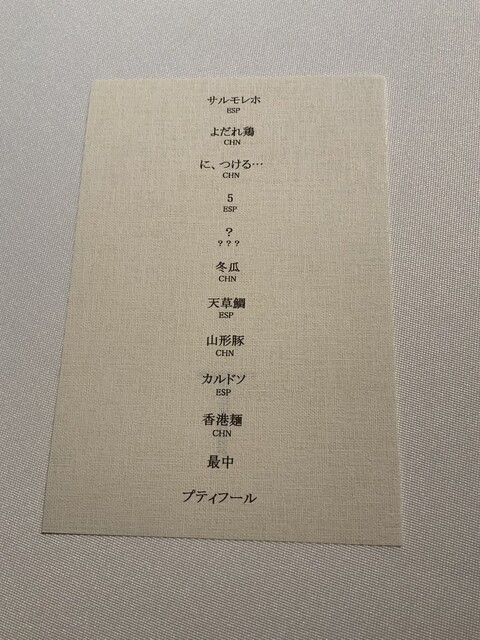 サルモレホ
ESP
よだれ鶏
CHN
に、つける…
CHN
5
ESP
？
？？？
冬瓜
CHN
天草鯛
ESP
山形豚
CHN
カルドソ
ESP
香港麺
CHN
最中
プティフール